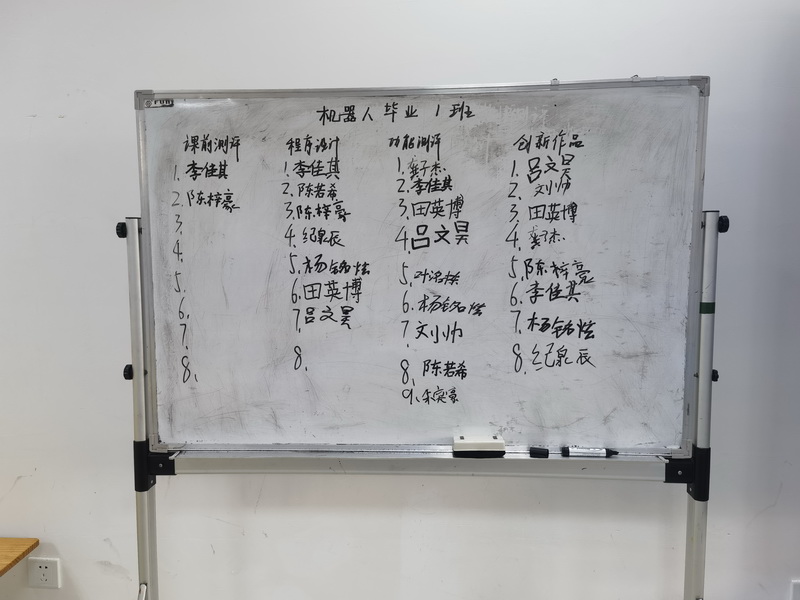 机器人毕业1班
课前测评
1. 李佳其
2. 陈梓豪
3.
4.
5.
6.
7.
8、
程序设计
1. 李佳其
2. 陈若希
3. 陈梓豪
4. 纪泉辰
5. 杨铭炫
6. 田英博
7. 吕文昊
8.
功能测评
1. 龚子杰
2. 李佳其
3. 田英博
4. 吕文昊
5.
6. 杨铭炫
7. 刘小帅
8、陈若希
9、
创新作品
1. 吕文昊
2. 刘小帅
3. 田英博
4. 龚子杰
5. 陈梓亮
6. 李佳其
7. 杨铭炫
8. 纪泉辰